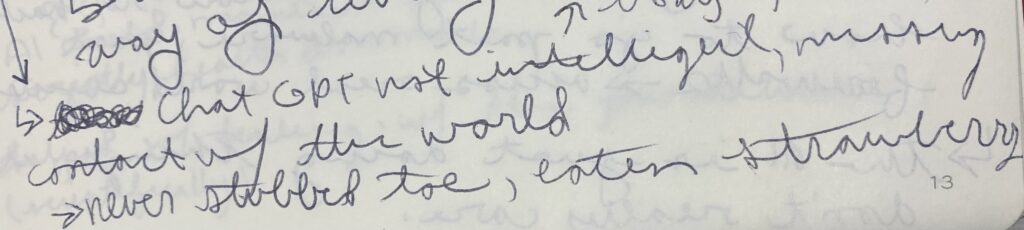 way of
↳ Chat GPT not intelligent, missing
contact w/ the world
→ never stubbed toe, eaten strawberry
13